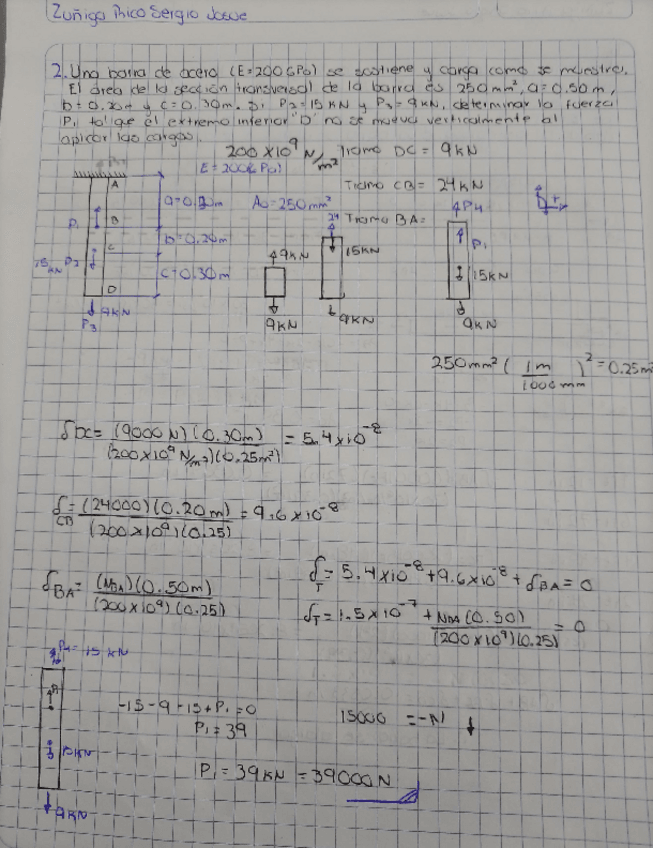 Zuñiga Rico Sergio Josue
2. Una barra de acero (E=200 GPa) se sostiene y carga como se muestra.
El área de la sección transversal de la barra es 250 mm², a=0.50m,
b=0.20m y c=0.30m. Si P2=15 KN y P3=9KN, determinar la fuerza
P1 tal que el extremo inferior "D" no se mueva verticalmente al
aplicar las cargas.
200 x10⁹ N/m²
E=200GPa
Tramo DC = 9KN
Tramo CB = 24KN
Tramo BA=
A
B
C
D
a=0.50m
b=0.20m
c=0.30m
A0=250mm²
P1
15 KN P2
9KN
P3
9KN
9KN
24
15KN
9KN
P4
P1
15KN
9KN
250mm² (1m/1000mm)² = 0.25m²
δDC= (9000N)(0.30m)/(200x10⁹ N/m²)(0.25m²) = 5.4x10⁻⁸
δCB= (24000)(0.20m)/(200x10⁹)(0.25) = 9.6x10⁻⁸
δBA= (NBA)(0.50m)/(200x10⁹)(0.25)
δT= 5.4x10⁻⁸+9.6x10⁻⁸+δBA=0
δT=1.5x10⁻⁷ + NBA(0.50)/(200x10⁹)(0.25) = 0
P4=15 KN
15KN
9KN
-15-9-15+P1=0
P1=39
15000 =-N
P1=39KN =39000N